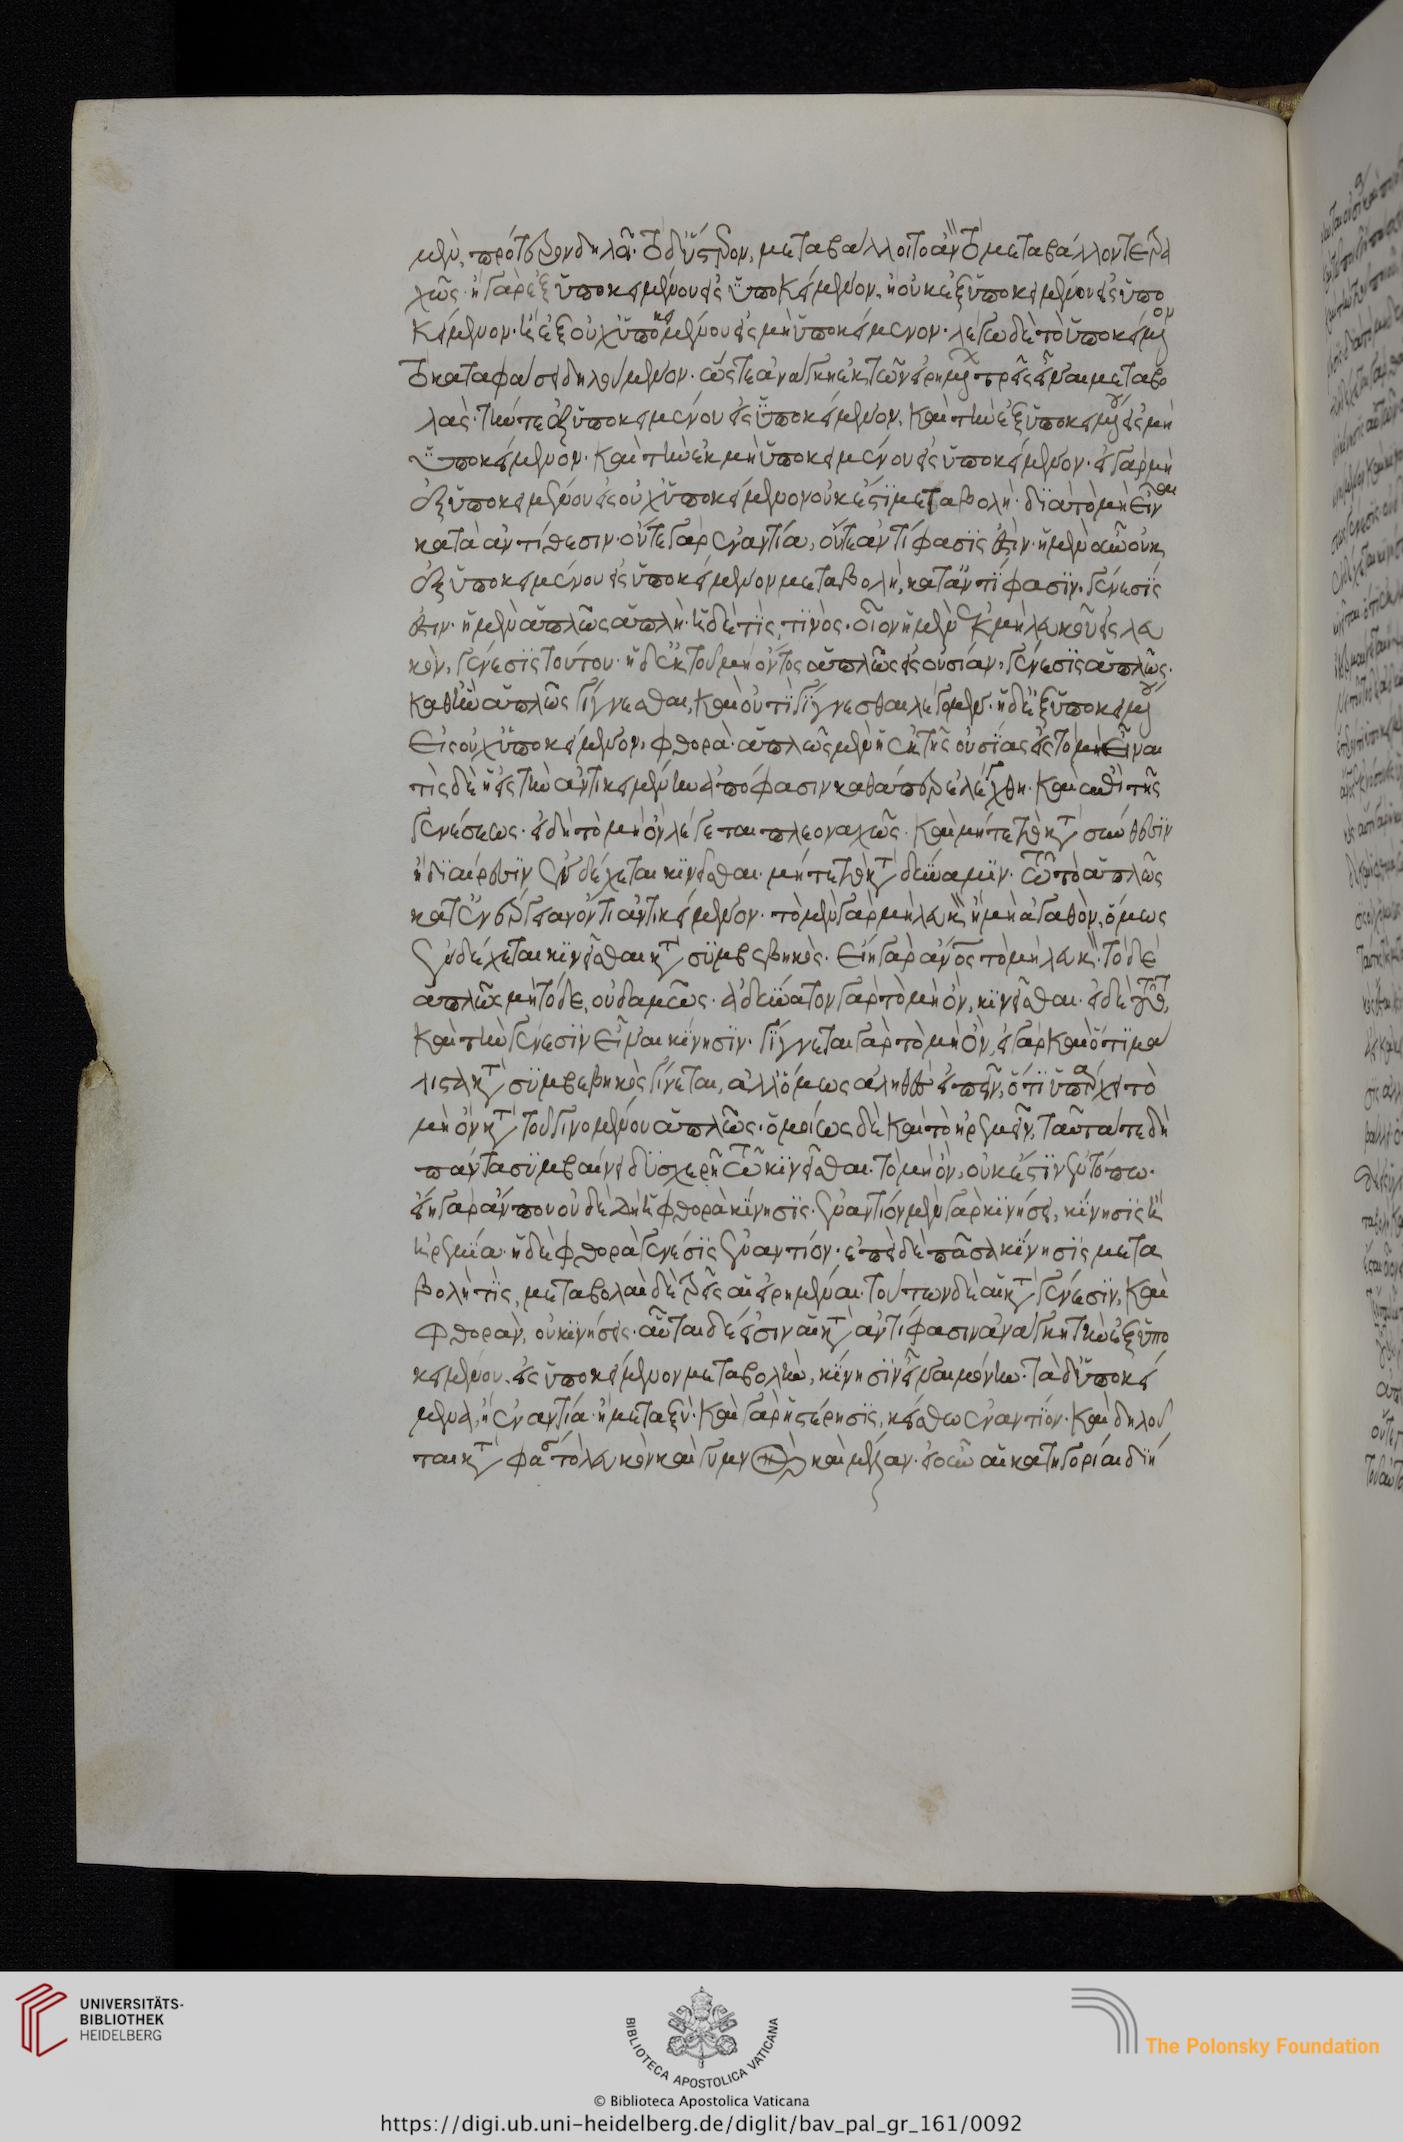 μὲν, πρότερον δηλοῖ· τὸ δ' ὕστερον, μεταβάλλοι τὸ ἂν τὸ μεταβάλλον τετρα
χῶς· ἢ γὰρ ἐξ ὑποκειμένου εἰς ὑποκείμενον, ἢ οὐκ ἐξ ὑποκειμένου εἰς ὑπο
κείμενον· ἢ ἐξ οὐχ ὑποκειμένου εἰς μὴ ὑποκείμενον· λέγω δὲ τὸ ὑποκείμενον
τὸ καταφάσει δηλούμενον· ὥστε ἀνάγκη ἐκ τῶν εἰρημένων τρεῖς εἶναι μεταβο
λάς· τήν τε ἐξ ὑποκειμένου εἰς ὑποκείμενον, καὶ τὴν ἐξ ὑποκειμένου εἰς μὴ
ὑποκείμενον· καὶ τὴν ἐκ μὴ ὑποκειμένου εἰς ὑποκείμενον· ἡ γὰρ μὴ
ἐξ ὑποκειμένου εἰς οὐχ ὑποκείμενον οὐκ ἔστι μεταβολὴ· διὰ τὸ μὴ εἶναι
κατὰ ἀντίθεσιν· οὔτε γὰρ ἐναντία, οὔτε ἀντίφασις ἐστὶν· ἡ μὲν οὖν οὐκ
ἐξ ὑποκειμένου εἰς ὑποκείμενον μεταβολὴ, κατ' ἀντίφασιν· γένεσίς
ἐστιν· ἡ μὲν ἁπλῶς ἁπλὴ· ἡ δὲ τὶς, τινὸς· οἷον ἡ μὲν ἐκ μὴ λευκοῦ εἰς λευ
κὸν, γένεσις τούτου· ἡ δ' ἐκ τοῦ μὴ ὄντος ἁπλῶς εἰς οὐσίαν, γένεσις ἁπλῶς·
καθ' ἣν ἁπλῶς γίγνεσθαι, καὶ οὐ τὶ γίγνεσθαι λέγομεν· ἡ δ' ἐξ ὑποκειμένου
εἰς οὐχ ὑποκείμενον, φθορὰ· ἁπλῶς μὲν ἡ ἐκ τῆς οὐσίας εἰς τὸ μὴ εἶναι
τὶς δὲ ἡ εἰς τὴν ἀντικειμένην ἀπόφασιν καθάπερ ἐλέχθη· καὶ ἐπὶ τῆς
γενέσεως· εἰ δὴ τὸ μὴ ὂν λέγεται πλεοναχῶς· καὶ μήτε τὸ κατὰ σύνθεσιν
ἢ διαίρεσιν ἐνδέχεται κινεῖσθαι· μήτε τὸ κατὰ δύναμιν· τῶ τὸ ἁπλῶς
κατ' ἐνέργειαν ὄντι ἀντικείμενον· τὸ μὲν γὰρ μὴ λευκὸν ἢ μὴ ἀγαθὸν, ὅμως
ἐνδέχεται κινεῖσθαι κατὰ συμβεβηκὸς· εἴη γὰρ ἂν ἄνθρωπος τὸ μὴ λευκὸν· τὸ δὲ
ἁπλῶς μὴ τόδε, οὐδαμῶς· ἀδύνατον γὰρ τὸ μὴ ὂν, κινεῖσθαι· εἰ δὲ τοῦτο,
καὶ τὴν γένεσιν εἶναι κίνησιν· γίγνεται γὰρ τὸ μὴ ὂν, εἰ γὰρ καὶ ὅτι μά
λιστα κατὰ συμβεβηκὸς γίνεται, ἀλλ' ὅμως ἀληθὲς εἰπεῖν, ὅτι ὑπάρχει τὸ
μὴ ὂν κατὰ τοῦ γινομένου ἁπλῶς· ὁμοίως δὲ καὶ τὸ ἠρεμεῖν, ταῦτά τε δὴ
πάντα συμβαίνει δυσχερῆ τῶ κινεῖσθαι τὸ μὴ ὂν, οὐκ ἔστιν ἐν τόπω·
εἴη γὰρ ἄν που οὐδὲ δὴ ἡ φθορὰ κίνησις· ἐναντίον μὲν γὰρ κινήσει, κίνησις ἢ
ἠρεμία· ἡ δὲ φθορὰ γενέσει ἐναντίον· ἐπεὶ δὲ πᾶσα κίνησις μετα
βολή τις, μεταβολαὶ δὲ τρεῖς αἱ εἰρημέναι· τούτων δὲ αἱ κατὰ γένεσιν, καὶ
φθορὰν, οὐ κινήσεις· αὗται δέ εἰσιν αἱ κατὰ ἀντίφασιν ἀνάγκη τὴν ἐξ ὑπο
κειμένου εἰς ὑποκείμενον μεταβολὴν, κίνησιν εἶναι μόνην· τὰ δ' ὑποκεί
μενα, ἢ ἐναντία· ἢ μεταξὺ· καὶ γὰρ ἡ στέρησις, κείσθω ἐναντίον· καὶ δηλοῦ
ται κατὰ φάσει τὸ λευκὸν καὶ γυμνὸν καὶ μέλαν· εἰ οὖν αἱ κατηγορίαι διή